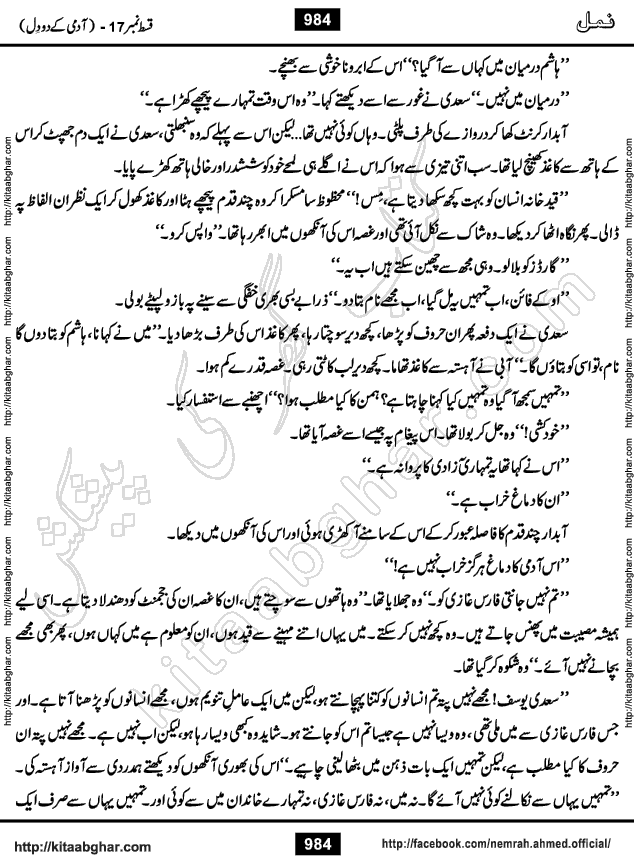 نمل
984
قسط نمبر 17- (آدمی کے دو دِل)
’’ہاشم درمیان میں کہاں سے آ گیا؟‘‘ اس کے ابرو ناخوشی سے بھنچے۔
’’درمیان میں نہیں۔‘‘ سعدی نے غور سے اسے دیکھتے کہا۔ ’’وہ اس وقت تمہارے پیچھے کھڑا ہے۔‘‘
آبدار کرنٹ کھا کر دروازے کی طرف پلٹی۔ وہاں کوئی نہیں تھا... لیکن اس سے پہلے کہ وہ سنبھلتی، سعدی نے ایک دم جھپٹ کر اس
کے ہاتھ سے کاغذ کھینچ لیا تھا۔ سب اتنی تیزی سے ہوا کہ اس نے اگلے ہی لمحے خود کو ششدر اور خالی ہاتھ کھڑے پایا۔
’’قید خانہ انسان کو بہت کچھ سکھا دیتا ہے، مِس!‘‘ محظوظ سا مسکرا کر وہ چند قدم پیچھے ہٹا اور کاغذ کھول کر ایک نظر ان الفاظ پہ
ڈالی۔ پھر نگاہ اٹھا کر دیکھا۔ وہ شاک سے نکل آئی تھی اور غصہ اس کی آنکھوں میں ابھر رہا تھا۔ ’’واپس کرو۔‘‘
’’گارڈز کو بلا لو۔ وہی مجھ سے چھین سکتے ہیں اب یہ۔‘‘
’’اوکے فائن، اب تمہیں یہ مل گیا، اب مجھے نام بتا دو۔‘‘ ذرا بے بسی بھری خفگی سے سینے پہ بازو لپیٹے بولی۔
سعدی نے ایک دفعہ پھر ان حروف کو پڑھا، کچھ دیر سوچتا رہا، پھر کاغذ اس کی طرف بڑھا دیا۔ ’’میں نے کہا نا، ہاشم کو بتا دوں گا
نام، تو اسی کو بتاؤں گا۔‘‘ آبی نے آہستہ سے کاغذ تھاما۔ کچھ دیر لب کاٹتی رہی۔ غصہ قدرے کم ہوا۔
’’تمہیں سمجھ آ گیا وہ تمہیں کیا کہنا چاہتا ہے؟ ہمن کا کیا مطلب ہوا؟‘‘ اچنبھے سے استفسار کیا۔
’’خودکشی!‘‘ وہ جل کر بولا تھا۔ اس پیغام پہ جیسے اسے غصہ آیا تھا۔
’’اس نے کہا تھا یہ تمہاری آزادی کا پروانہ ہے۔‘‘
’’ان کا دماغ خراب ہے۔‘‘
آبدار چند قدم کا فاصلہ عبور کر کے اس کے سامنے آ کھڑی ہوئی اور اس کی آنکھوں میں دیکھا۔
’’اس آدمی کا دماغ ہرگز خراب نہیں ہے!‘‘
’’تم نہیں جانتی فارس غازی کو۔‘‘ وہ جھلایا تھا۔ ’’وہ ہاتھوں سے سوچتے ہیں، ان کا غصہ ان کی ججمنٹ کو دھندلا دیتا ہے۔ اسی لیے
ہمیشہ مصیبت میں پھنس جاتے ہیں۔ وہ کچھ نہیں کر سکتے۔ میں یہاں اتنے مہینے سے قید ہوں، ان کو معلوم ہے میں کہاں ہوں، پھر بھی مجھے
بچانے نہیں آئے۔‘‘ وہ شکوہ کر گیا تھا۔
’’سعدی یوسف! مجھے نہیں پتہ تم انسانوں کو کتنا پہچانتے ہو، لیکن میں ایک عاملِ تنویم ہوں، مجھے انسانوں کو پڑھنا آتا ہے۔ اور
جس فارس غازی سے میں ملی تھی، وہ ویسا نہیں ہے جیسا تم اس کو جانتے ہو۔ شاید وہ کبھی ویسا رہا ہو، لیکن اب نہیں ہے۔ مجھے نہیں پتہ ان
حروف کا کیا مطلب ہے، لیکن تمہیں ایک بات ذہن میں بٹھا لینی چاہیے۔‘‘ اس کی بھوری آنکھوں کو دیکھتے ہمدردی سے آواز آہستہ کی۔
’’تمہیں یہاں سے نکالنے کوئی نہیں آئے گا۔ نہ میں، نہ فارس غازی، نہ تمہارے خاندان میں سے کوئی اور۔ تمہیں یہاں سے صرف ایک
http://kitaabghar.com
984
http://facebook.com/nemrah.ahmed.official/
http://kitaabghar.com http://kitaabghar.com http://kitaabghar.com http://kitaabghar.com http://kitaabghar.com http://kitaabghar.com
http://kitaabghar.com http://kitaabghar.com http://kitaabghar.com http://kitaabghar.com http://kitaabghar.com http://kitaabghar.com
کتاب گھر کی پیشکش
kitaabghar.com